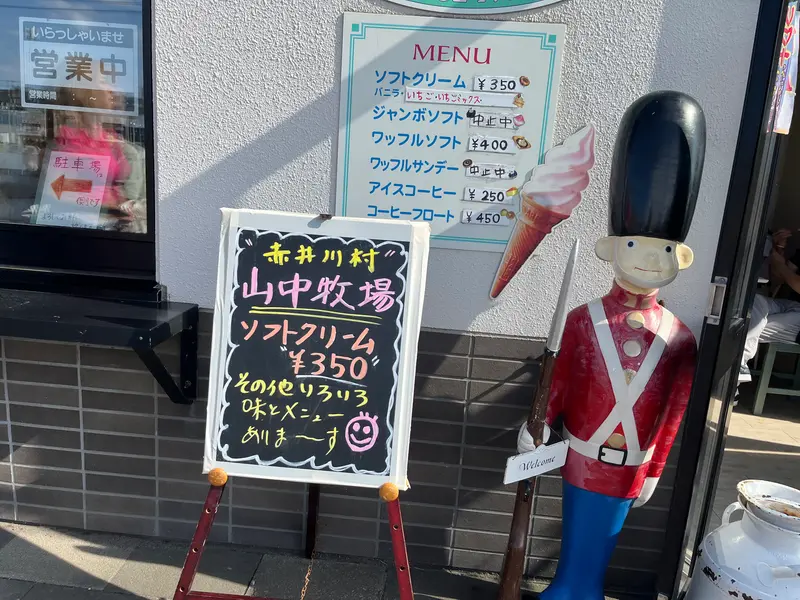 いらっしゃいませ
営業中
営業時間
駐車場
MENU
ソフトクリーム ¥350
バニラ・いちご・いちごミックス・
ジャンボソフト 中止中
ワッフルソフト ¥400
ワッフルサンデー 中止中
アイスコーヒー ¥250
コーヒーフロート ¥450
"赤井川村"
山中牧場
ソフトクリーム
"¥350"
その他いろいろ
味とメニュー
ありま〜す
Welcome